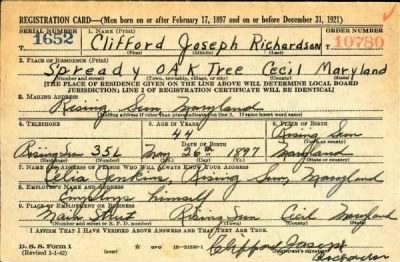 REGISTRATION CARD—(Men born on or after February 17, 1897 and on or before December 31, 1921)
SERIAL NUMBER 1. NAME (Print) ORDER NUMBER
1652 Clifford Joseph Richardson 10780
(First) (Middle) (Last)
2. PLACE OF RESIDENCE (Print)
Spready OAK Tree Cecil Maryland
(Number and street) (Town, township, village, or city) (County) (State)
[THE PLACE OF RESIDENCE GIVEN ON THE LINE ABOVE WILL DETERMINE LOCAL BOARD
JURISDICTION; LINE 2 OF REGISTRATION CERTIFICATE WILL BE IDENTICAL]
3. MAILING ADDRESS
Rising Sun Maryland
[Mailing address if other than place indicated on line 2. If same insert word same]
4. TELEPHONE 5. AGE IN YEARS 6. PLACE OF BIRTH
44 Rising Sun
DATE OF BIRTH (Town or county)
Rising Sun 35L Nov 26th 1897 Maryland
(Exchange) (Number) (Mo.) (Day) (Yr.) (State or country)
7. NAME AND ADDRESS OF PERSON WHO WILL ALWAYS KNOW YOUR ADDRESS
Jenkins Rising Sun, Maryland
8. EMPLOYER'S NAME AND ADDRESS
Employs himself
9. PLACE OF EMPLOYMENT OR BUSINESS
Main Street Rising Sun Cecil Maryland
(Number and street or R. F. D. number) (Town) (County) (State)
I AFFIRM THAT I HAVE VERIFIED ABOVE ANSWERS AND THAT THEY ARE TRUE.
D. S. S. Form 1
(Revised 1-1-42) GPO 16—21630-1 Clifford Joseph
Richardson